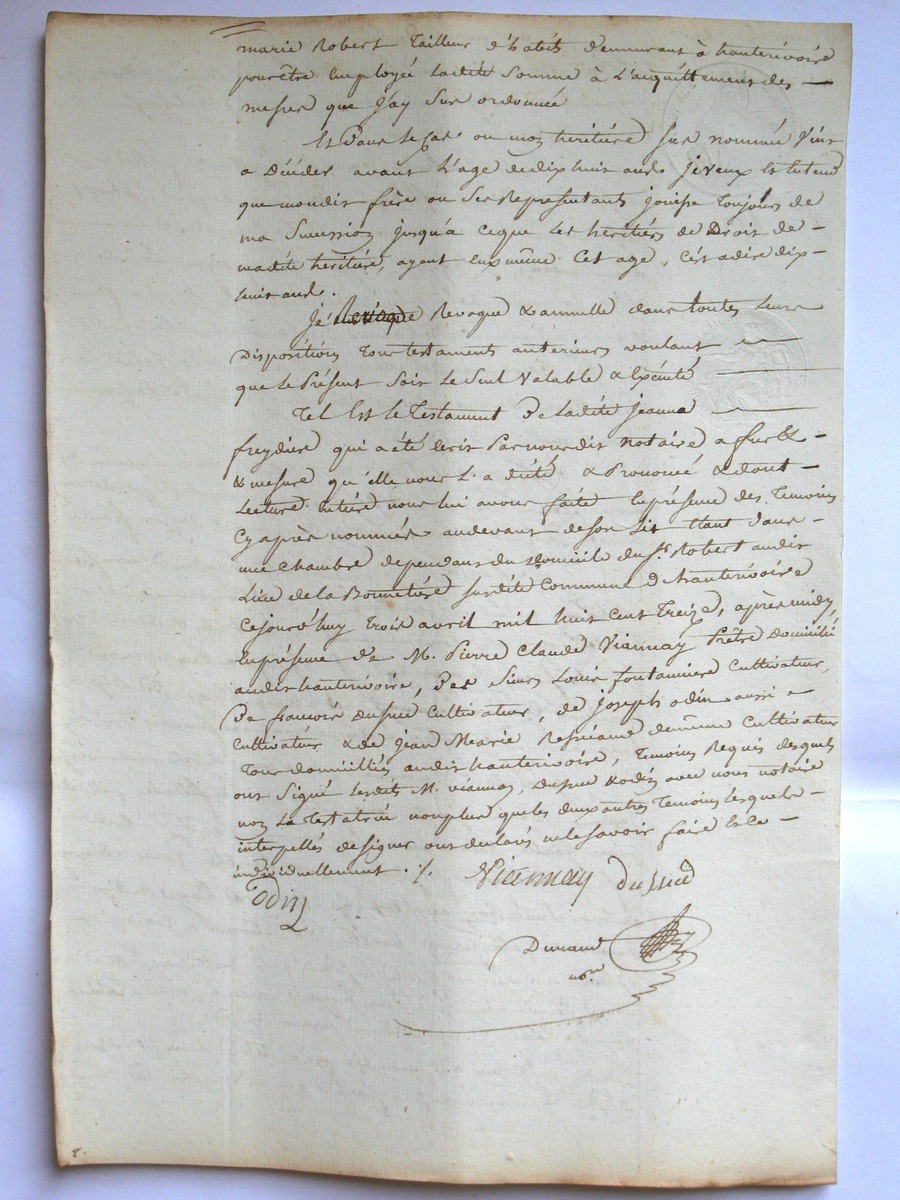 marie Robert Tailleur d'habits demeurant à hauterivoire
pour être Employée Ladite Somme à L'acquittement des —
messes que j'ay Sus ordonnée
Et Dans le Cas ou mon heritière sus nommée Vint
a Décéder avant L'age de dix huit ans Je Veux Et Entend
que mondit frère ou Ses Representants jouisse Toujours de
ma Succession jusqu'à ce que Les heritiers de Droit de —
madite heritière, ayent Eux même Cet age, C'est adire dix-
huit ans.
Je Revoque & annulle dans Toutes Leurs
Dispositions Tous Testaments anterieurs voulant —
que le Présent Soit Le Seul Valable & Exécuté —
Tel Est le Testament De Ladite Jeanne —
freydière qui a été Ecrit Par nous dit Notaire a fur & —
& mesure qu'elle nous L'a dicté & Prononcé & dont —
Lecture Entière nous lui avons faite En présence des Temoins
Cy après nommés audevant de son Lit Etant Dans —
une Chambre dependant du Domicile du Sr. Robert audit
Lieu de la Bonnetière susdite Commune D'hauterivoire
Cejourd'huy trois avril mil huit cent Treize, après midy,
En présence De M. Pierre Claude Viannay Prêtre Domicilié
audit hauterivoire, Des Sieurs Louis fontanière Cultivateur,
De françois Dussuc Cultivateur, de Joseph odin aussi —
Cultivateur & de Jean Marie demême Cultivateur
Tous domicilliés audit hauterivoire, Temoins Requis desquels
ont Signé Lesdits M. viannay, Dussuc & odin avec nous notaire
non La Testatrice non plus que les deux autres Temoins Lesquels —
interpellés de signer ont declarés ne le savoir faire Et ce —
individuellement ./.
Viannay Dussuc
Odin
Durand
nore